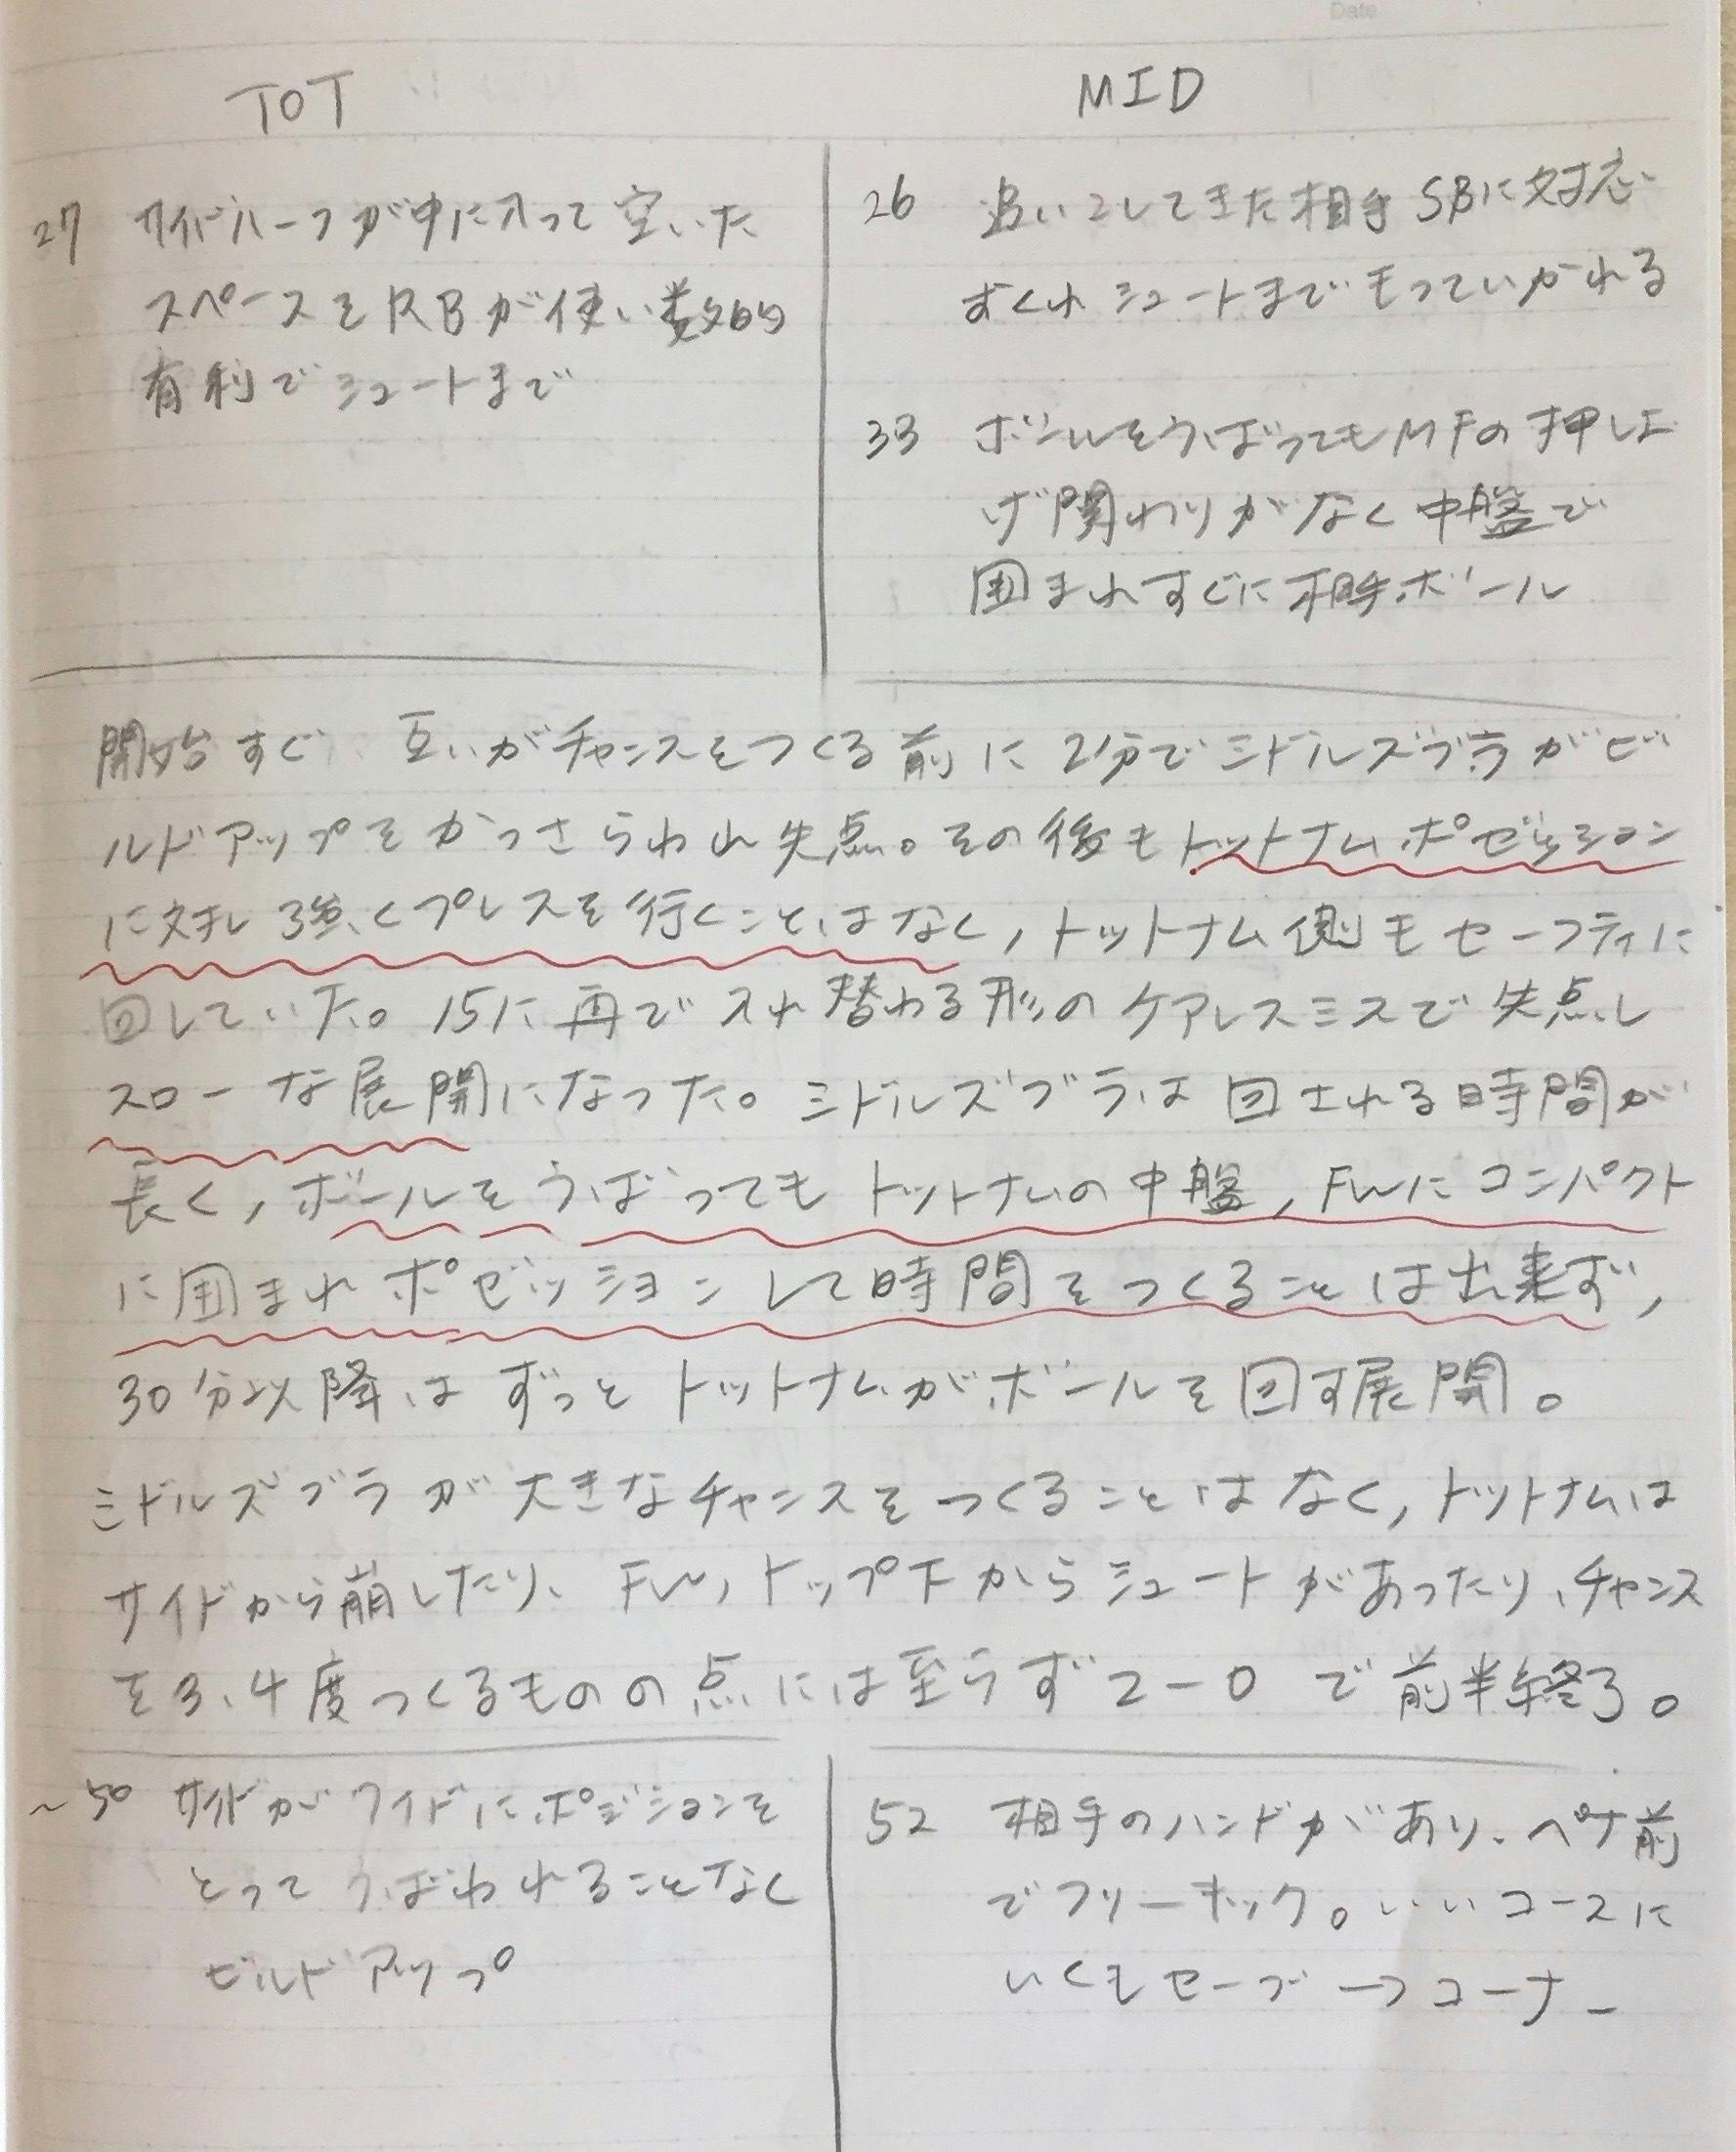 Date
TOT
MID
27 サイドハーフが中に入って空いた
スペースをRBが使い数的
有利でシュートまで
26 追いこしてきた相手SBに対応
おくれシュートまでもっていかれる
33 ボールをうばってもMFの押し上
げ関わりがなく中盤で
囲まれすぐに相手ボール
開始すぐ、互いがチャンスをつくる前に2分でミドルズブラがビ
ルドアップをかっさらわれ失点。その後もトットナムポゼッション
に対し強くプレスを行くことはなく,トットナム側もセーフティに
回していた。15に再で入れ替わる形のケアレスミスで失点し
スローな展開になった。ミドルズブラは回される時間が
長く,ボールをうばってもトットナムの中盤,FWにコンパクト
に囲まれポゼッションして時間をつくることは出来ず,
30分以降はずっとトットナムがボールを回す展開。
ミドルズブラが大きなチャンスをつくることはなく,トットナムは
サイドから崩したり、FW,トップ下からシュートがあったり、チャンス
を3、4度つくるものの点には至らず2-0で前半終了。
~50 サイドがワイドにポジションを
とってうばわれることなく
ビルドアップ
52 相手のハンドがあり、ペナ前
でフリーキック。いいコースに
いくもセーブ→コーナー